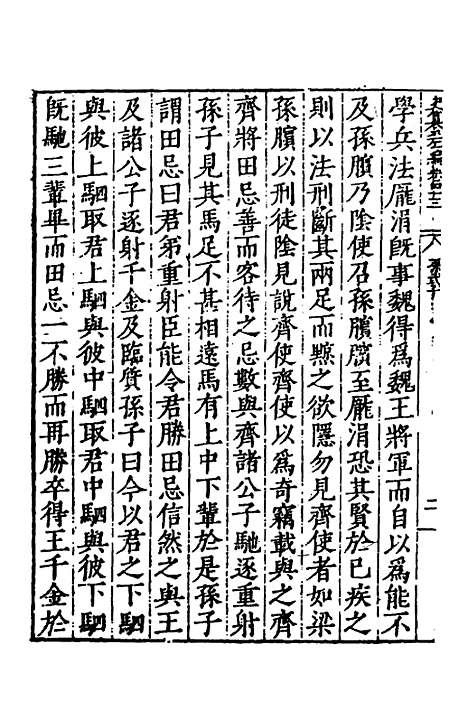 學兵法龎涓旣事魏得爲魏王將軍而自以爲能不
及孫臏乃陰使召孫臏臏至龎涓恐其賢於已疾之
則以法刑斷其兩足而黥之欲隱勿見齊使者如梁
孫臏以刑徒陰見說齊使齊使以爲奇竊載與之齊
齊將田忌善而客待之忌數與齊諸公子馳逐重射
孫子見其馬足不甚相遠馬有上中下輩於是孫子
謂田忌曰君弟重射臣能令君勝田忌信然之與王
及諸公子逐射千金及臨質孫子曰今以君之下駟
與彼上駟取君上駟與彼中駟取君中駟與彼下駟
旣馳三輩畢而田忌一不勝而再勝卒得王千金於